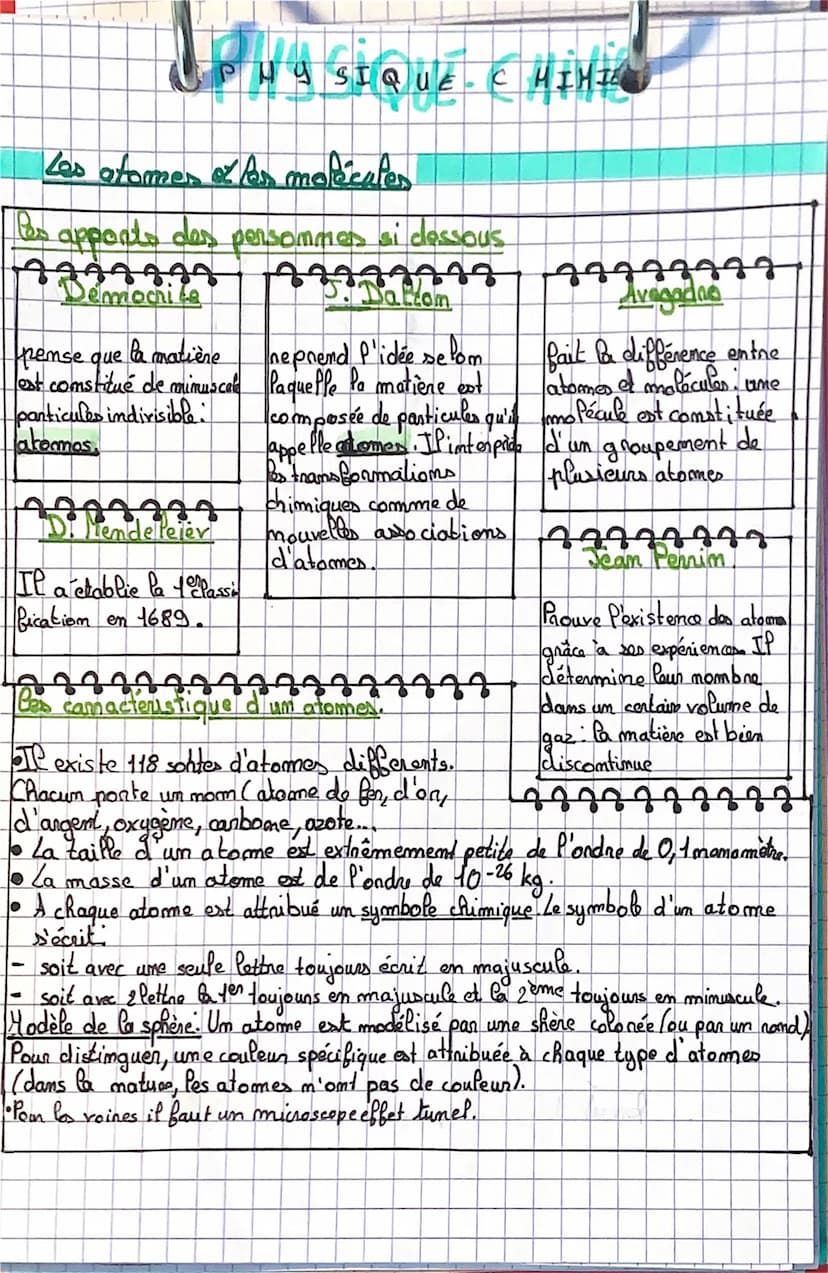 PHYSIQUE-CHIMIE
PHYSIQUE CHIMIE
Les atomes et les molécules
Les apports des personnes si dessous
Démocrite
pense que la matière
est constitué de minuscule
particules indivisible :
atomos.
J. Dalton
reprend l'idée selon
laquelle la matière est
composée de particules qu'il
appelle atomes. Il interprète
les transformations
chimiques comme de
nouvelles associations
d'atomes.
Avogadro
fait la différence entre
atomes et molécules : une
molécule est constituée
d'un groupement de
plusieurs atomes
D. Mendeleïev
Il a établie la 1ère classi
fication en 1689.
Jean Perrin
Prouve l'existence des atomes
grâce à ses expériences Il
détermine leur nombre
dans un certain volume de
gaz : la matière est bien
discontinue
Les caractéristique d'un atomes.
• Il existe 118 sohtes d'atomes différents.
Chacun porte un nom (atome de fer, d'or,
d'argent, oxygène, carbone, azote...
• La taille d'un atome est extrêmement petite de l'ordre de 0,1 nanomètre.
• La masse d'un atome est de l'ordre de 10⁻²⁶ kg.
• A chaque atome est attribué un symbole chimique. Le symbole d'un atome
s'écrit :
- soit avec une seule lettre toujours écrit en majuscule.
- soit avec 2 lettre la 1er toujours en majuscule et la 2ème toujours en minuscule.
Modèle de la sphère : Un atome est modélisé par une shère colorée (ou par un rond)
Pour distinguer, une couleur spécifique est attribuée à chaque type d'atomes
(dans la nature, les atomes n'ont pas de couleur).
• Pour les voires il faut un microscope effet tunel.